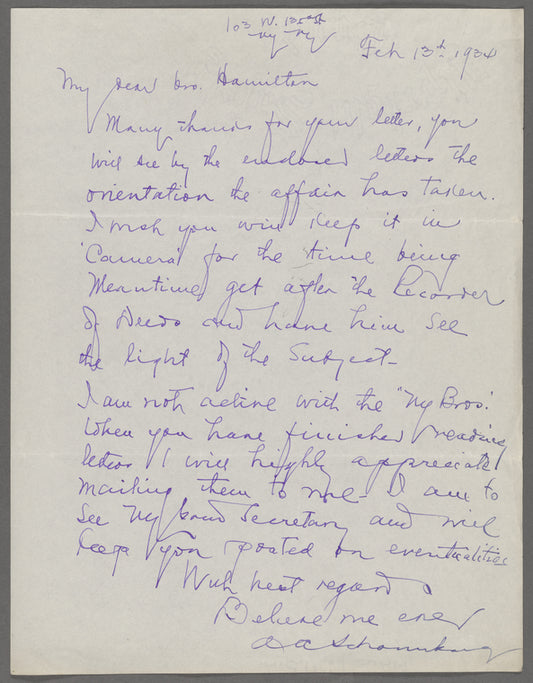 103 W. 135th St
Ny Ny
Feb 13th 1934
My dear bro. Hamilton
Many thanks for your letter, you
will see by the enclosed letters the
orientation the affair has taken.
I wish you will keep it in
'Camera' for the time being
Meantime, get after the Recorder
of Deeds and have him see
the light of the Subject-
I am not active with the "Ny Bros.'
When you have finished reading
letters I will highly appreciate
mailing them to me- I am to
See Ny Secretary and will
keep you posted on eventualities
With best regards
Believe me ever
A A Schomburg